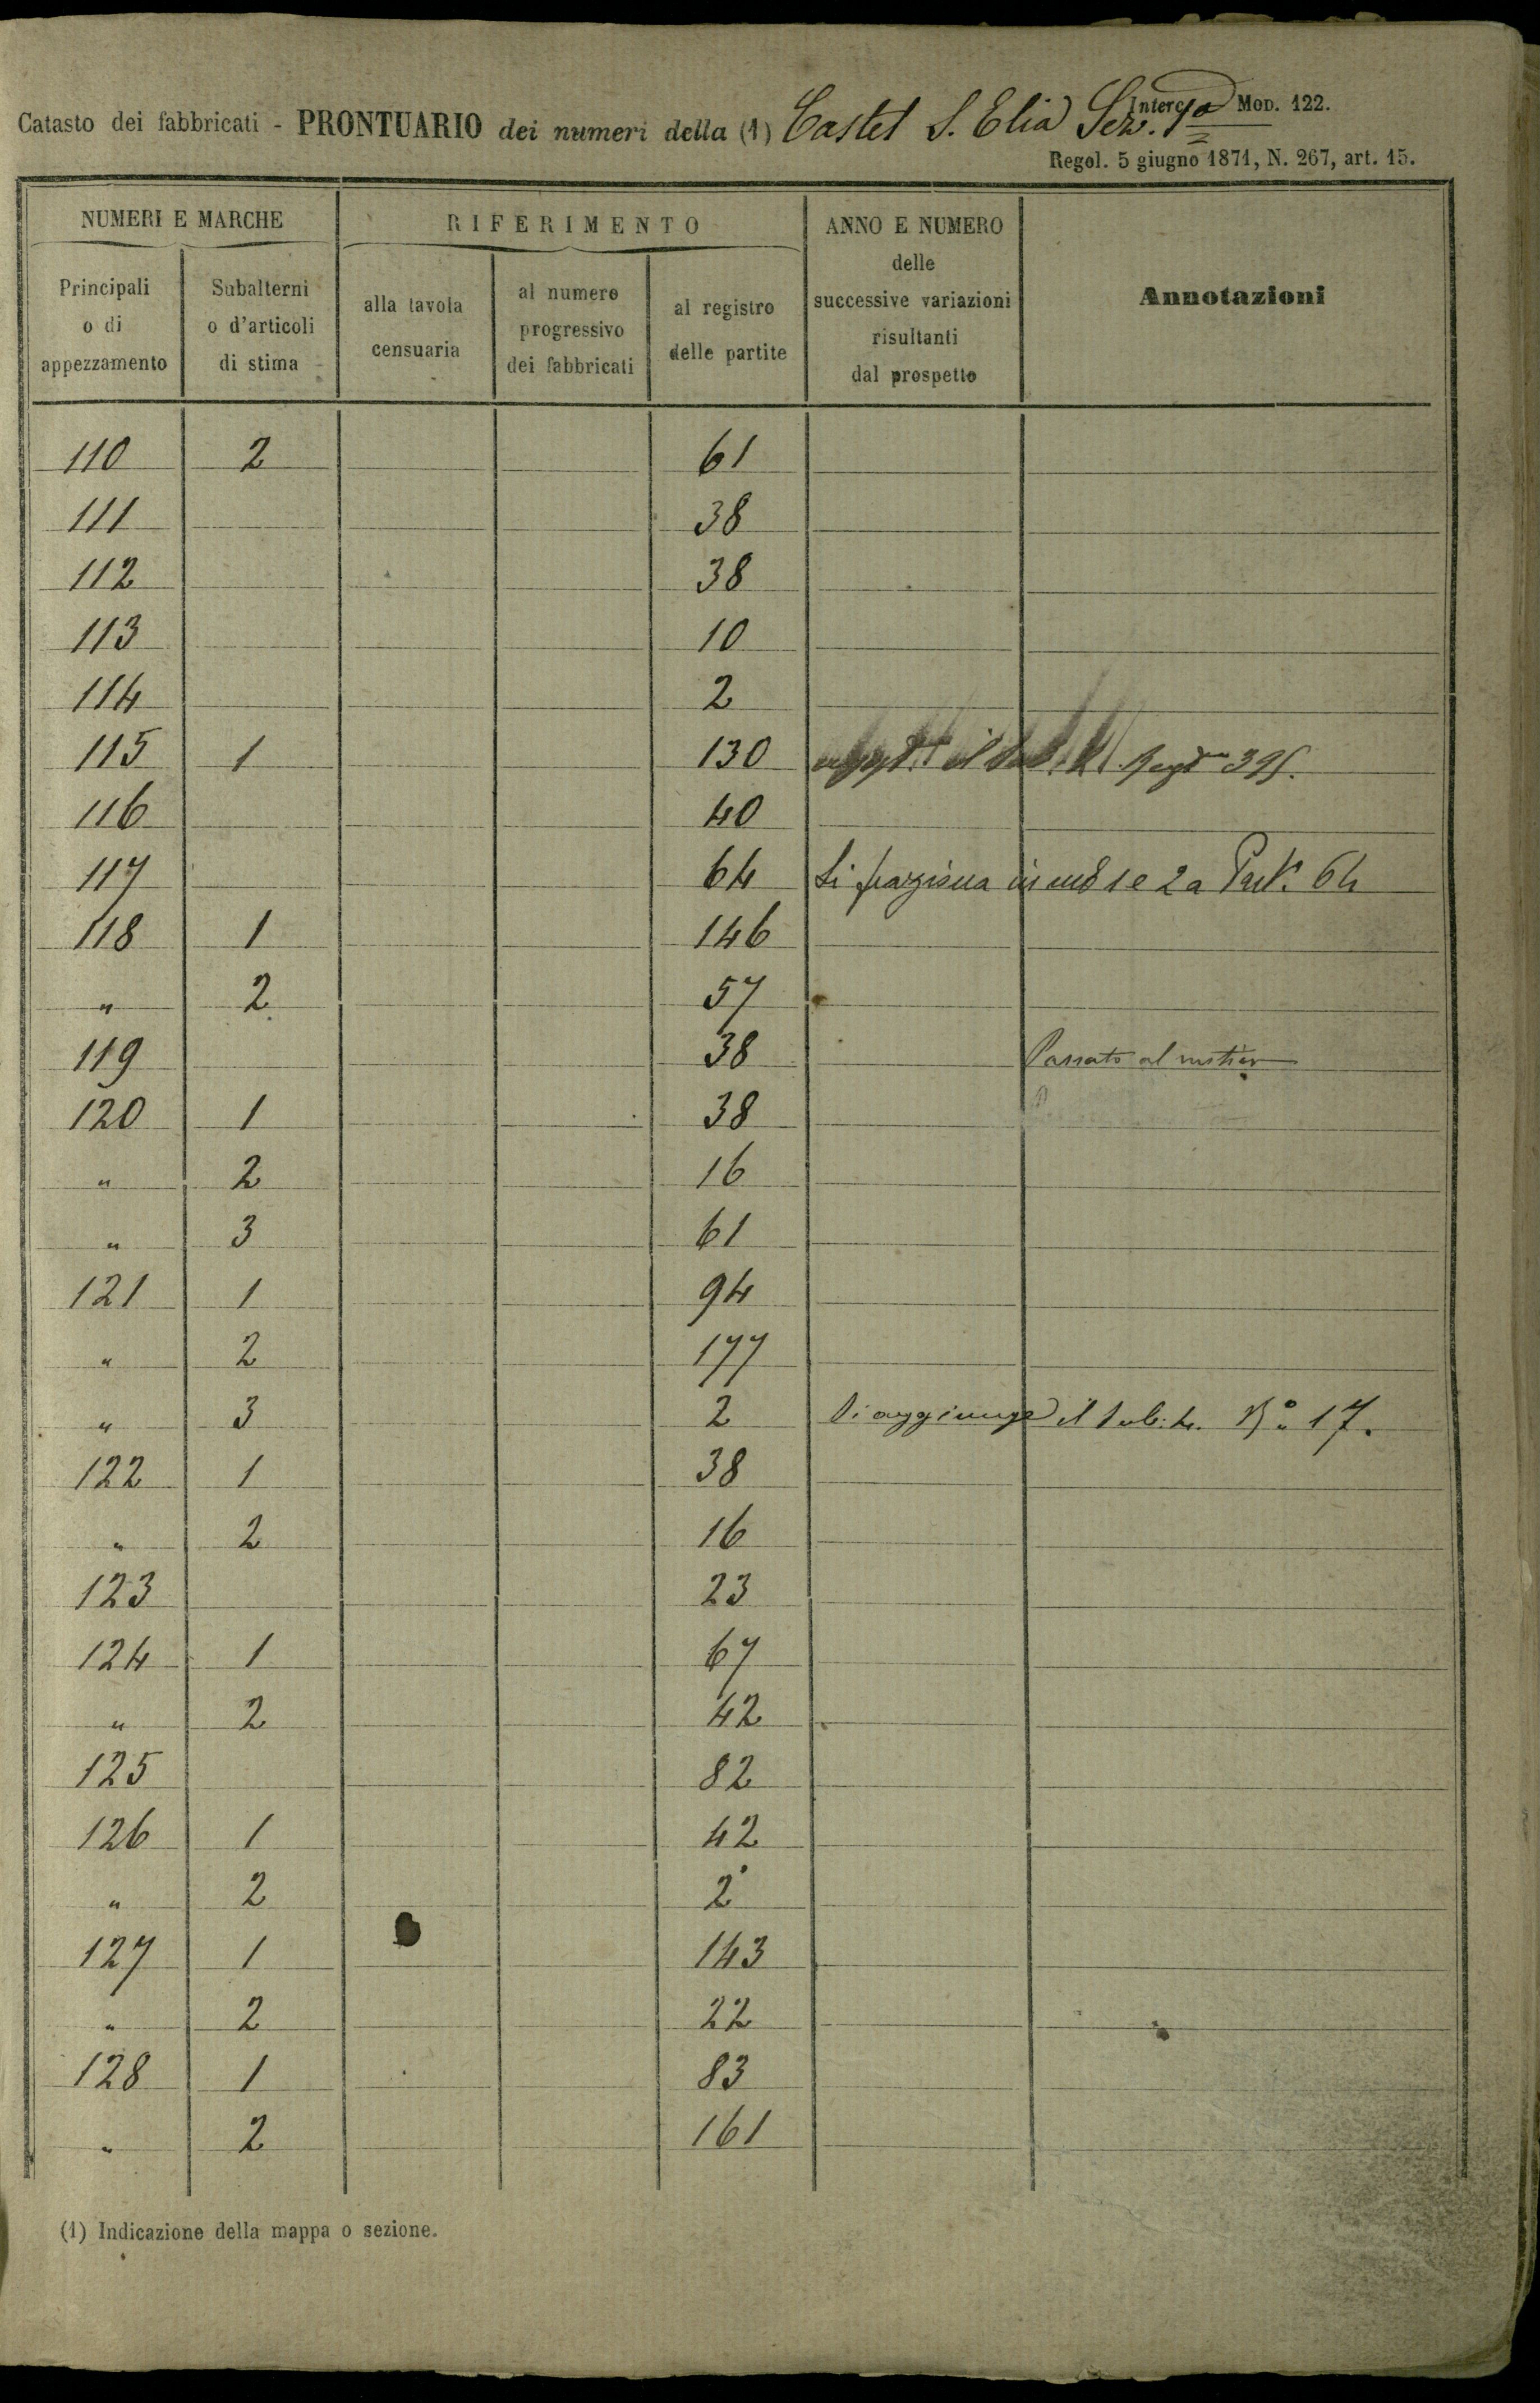 Interc. Mod. 122.
Catasto dei fabbricati - PRONTUARIO dei numeri della (1) Castel S. Elia Sez. 1a
Regol. 5 giugno 1871, N. 267, art. 15.
NUMERI E MARCHE
RIFERIMENTO
ANNO E NUMERO
delle
successive variazioni
risultanti
dal prospetto
Annotazioni
Principali
o di
appezzamento
Subalterni
o d'articoli
di stima
alla tavola
censuaria
al numero
progressivo
dei fabbricati
al registro
delle partite
110 2 61
111 38
112 38
113 10
114 2
115 1 130 il
116 40
117 64 Si fraziona in 1 e 2 a Part. 64
118 1 146
" 2 57
119 38 Passato al
120 1 38
" 2 16
" 3 61
121 1 94
" 2 177
" 3 2 Si aggiunge il sub. 4. No 17.
122 1 38
" 2 16
123 23
124 1 67
" 2 42
125 82
126 1 42
" 2 2
127 1 143
" 2 22
128 1 83
" 2 161
(1) Indicazione della mappa o sezione.